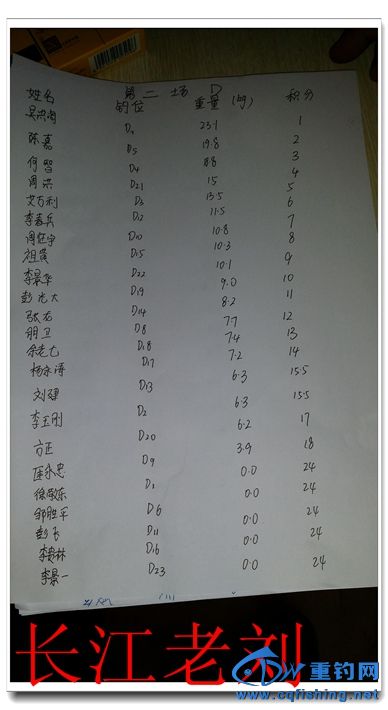 第二场 D
姓名 钓位 重量(kg) 积分
D7 23.1 1
陈嘉 D5 19.8 2
何智 D4 18.8 3
周洪 D21 15 4
艾万利 D3 13.5 5
李春兵 D12 11.5 6
D10 10.8 7
D15 10.3 8
李景华 D22 10.1 9
彭光大 D19 9.0 10
张右 D14 8.2 11
胡卫 D8 7.7 12
D18 7.4 13
杨永涛 D17 7.2 14
刘建 D13 6.3 15.5
李玉刚 D2 6.3 15.5
方正 D20 6.2 17
匡永忠 D9 3.9 18
徐敬东 D1 0.0 24
邹胜平 D6 0.0 24
彭飞 D11 0.0 24
李贵林 D16 0.0 24
李景一 D23 0.0 24
长江老刘
重钓网
www.cqfishing.net